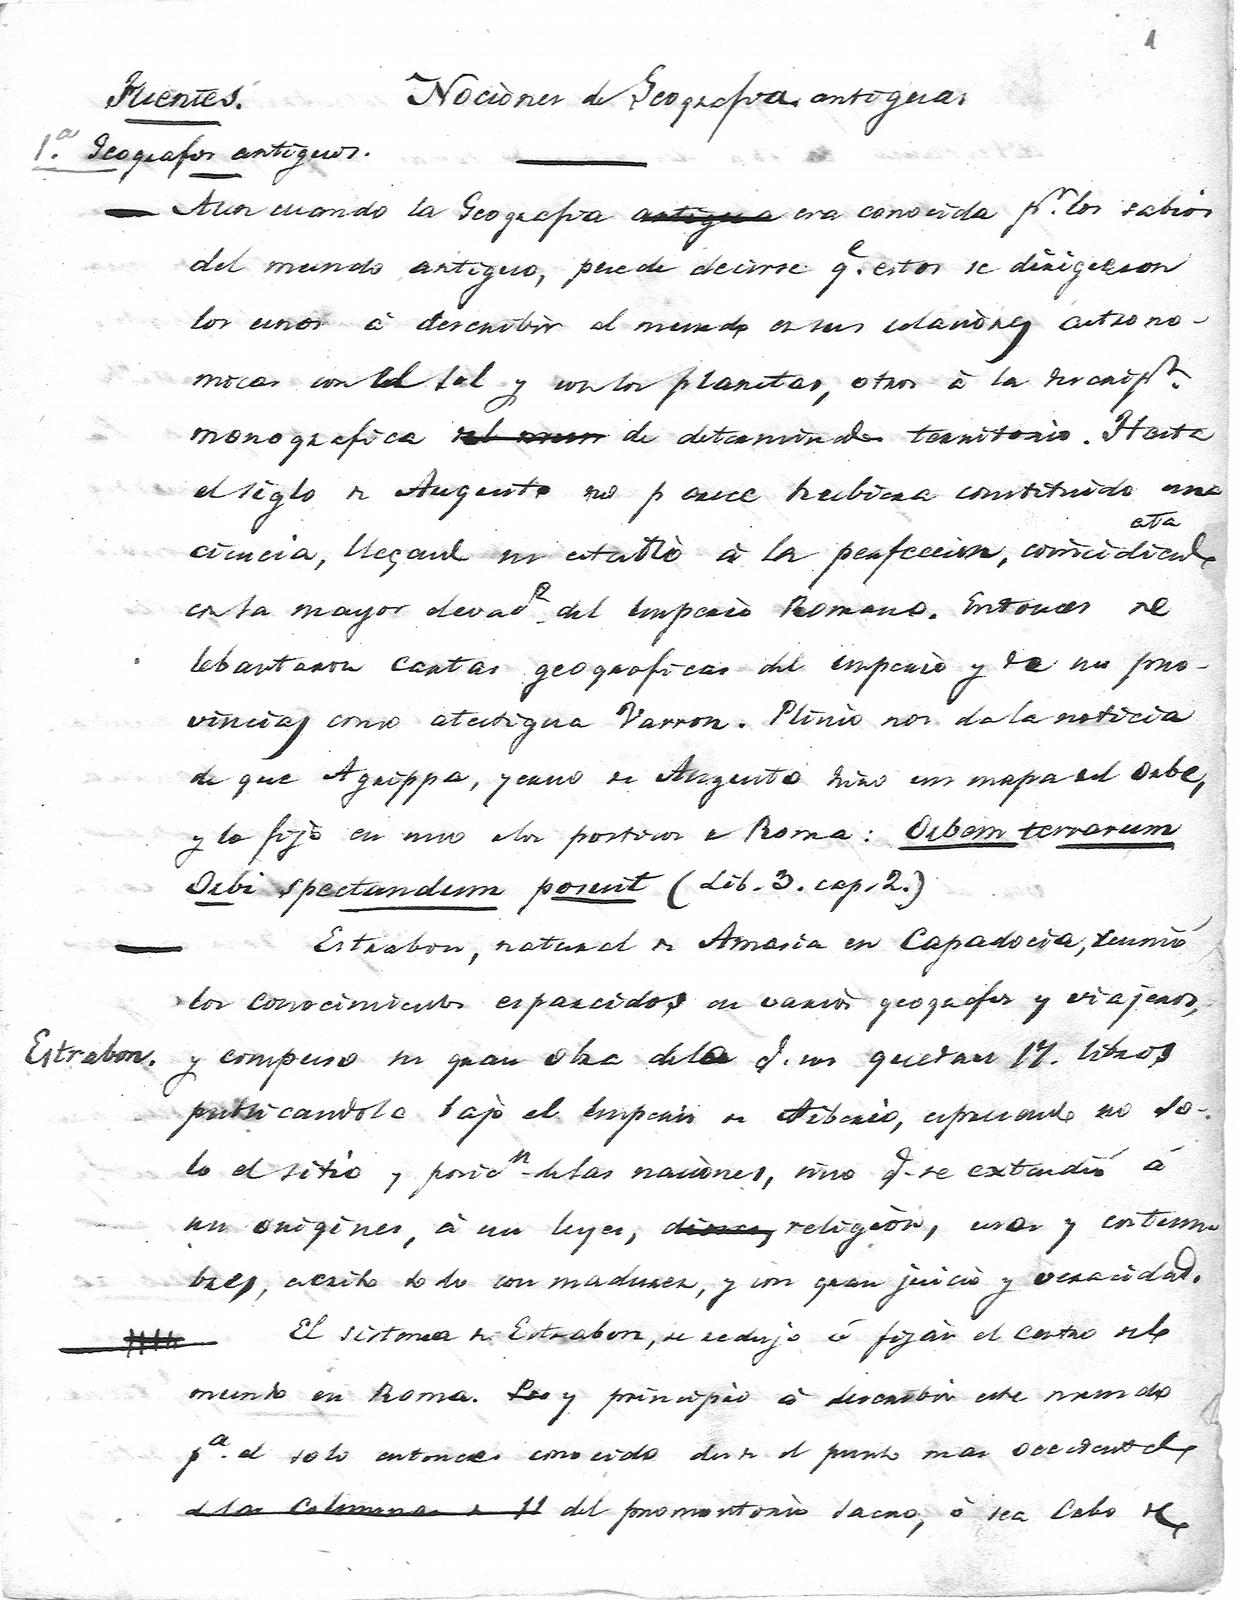 1
Fuentes. Nociones de Geografia antigua.
1.ª Geografos antiguos.
Aun cuando la Geografia antigua era conocida pr. los sabios
del mundo antiguo, puede decirse qe. estos se dirigieron
los unos á describir el mundo en sus relaciones astrono-
micas con el Sol y con los planetas, otros á la descripn.
monografica del mun de determinado territorio. Hasta
el siglo de Augusto no parece hubiera constituido una
ciencia, llegand en esta
á la perfeccion, coincidiendo
con la mayor elevacn. del Imperio Romano. Entonces se
lebantaron cartas geograficas del imperio y de sus pro-
vincias como atestigua Varron. Plinio nos da la noticia
de que Agrippa, yerno de Augusto hizo un mapa del Orbe,
y lo fijó en uno de los porticos de Roma: Orbem terrarum
Orbi spectandum posuit (Lib. 3. cap. 2.)
Estrabon, natural de Amasia en Capadocia, reunió
los conocimientos esparcidos en varios geografos y viajeros,
Estrabon. y compuso su gran obra de la q. nos quedan 17. libros
publicandola bajo el Imperio de Tiberio, no so-
lo el sitio y posicn. de las naciones, sino q. se extendió á
sus origines, á sus leyes, religion, usos y costum
bres, escrito todo con madurez, y con gran juicio y veracidad.
El sistema de Estrabon, se redujo á fijar el centro del
mundo en Roma. y principio á describir este mundo
pª. el solo entonces conocido desde el punto mas occidental
de las Columnas de H del promontorio Sacro, ó sea Cabo de